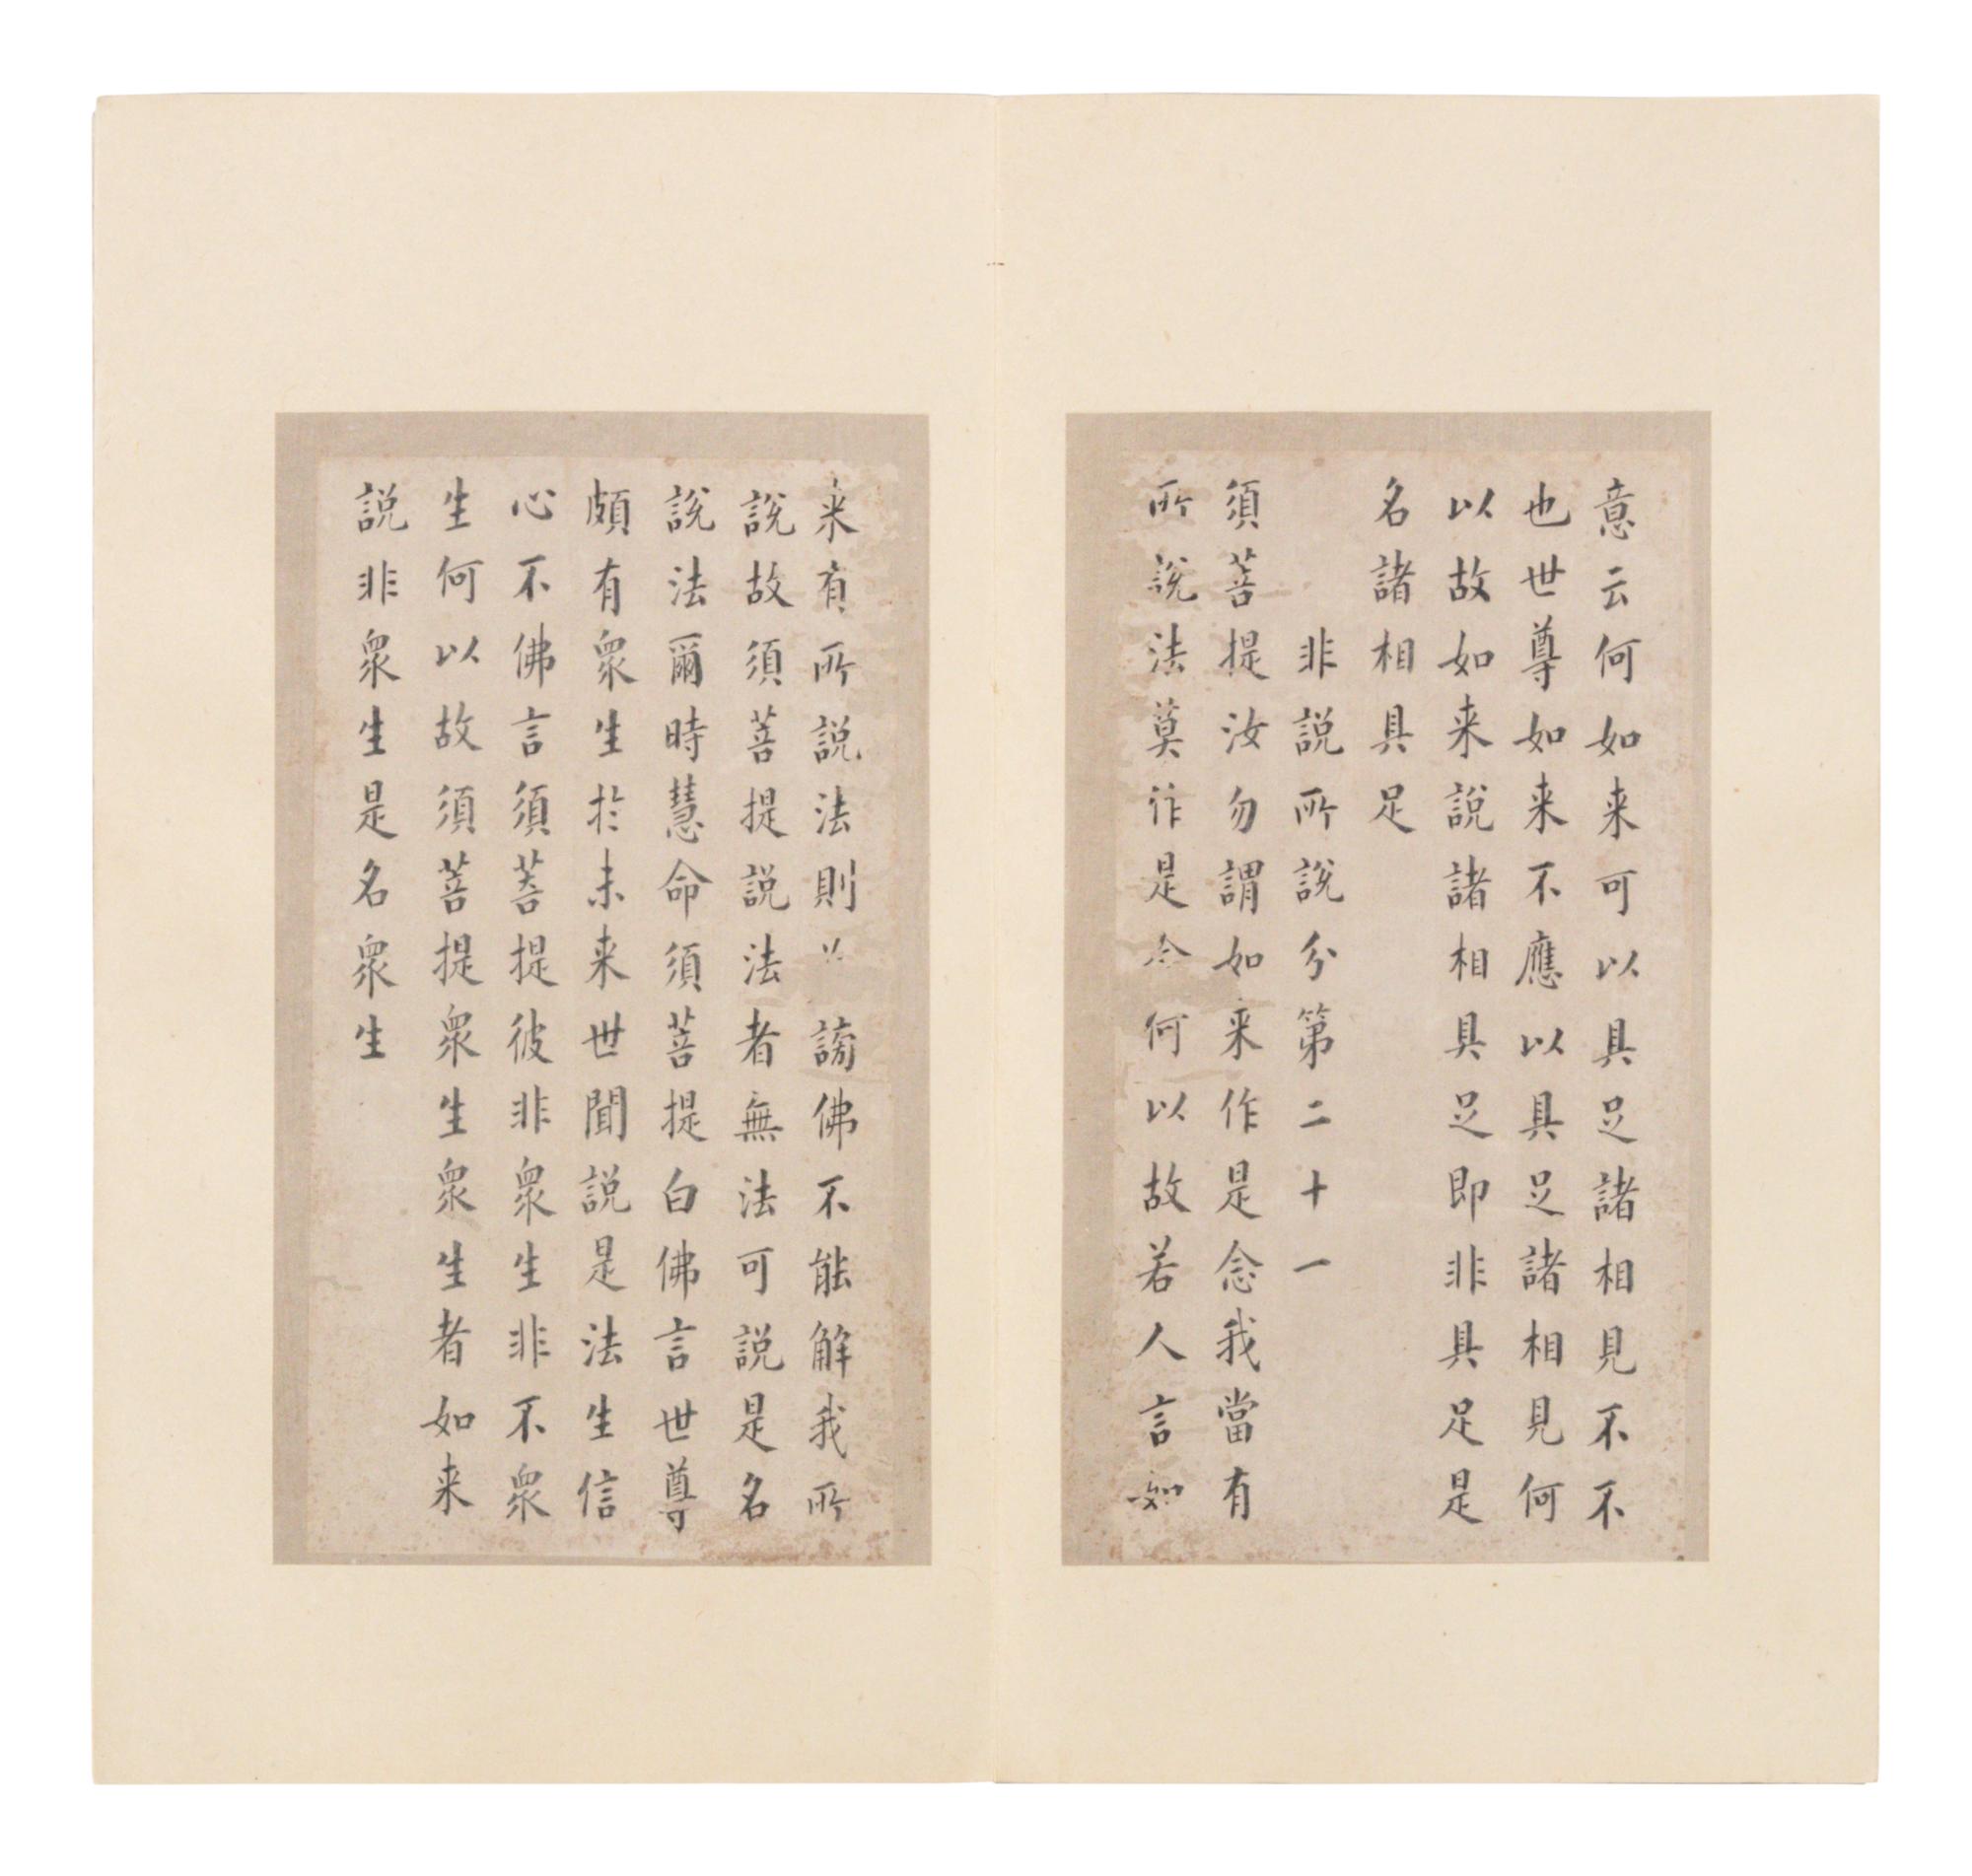 意云何如来可以具足諸相見不不
也世尊如来不應以具足諸相見何
以故如来說諸相具足即非具足是
名諸相具足
非說所說分第二十一
須菩提汝勿謂如来作是念我當有
所說法莫作是念何以故若人言如
来有所說法則謗佛不能解我所
說故須菩提說法者無法可說是名
說法爾時慧命須菩提白佛言世尊
頗有眾生於未来世聞說是法生信
心不佛言須菩提彼非眾生非不眾
生何以故須菩提眾生眾生者如来
說非眾生是名眾生